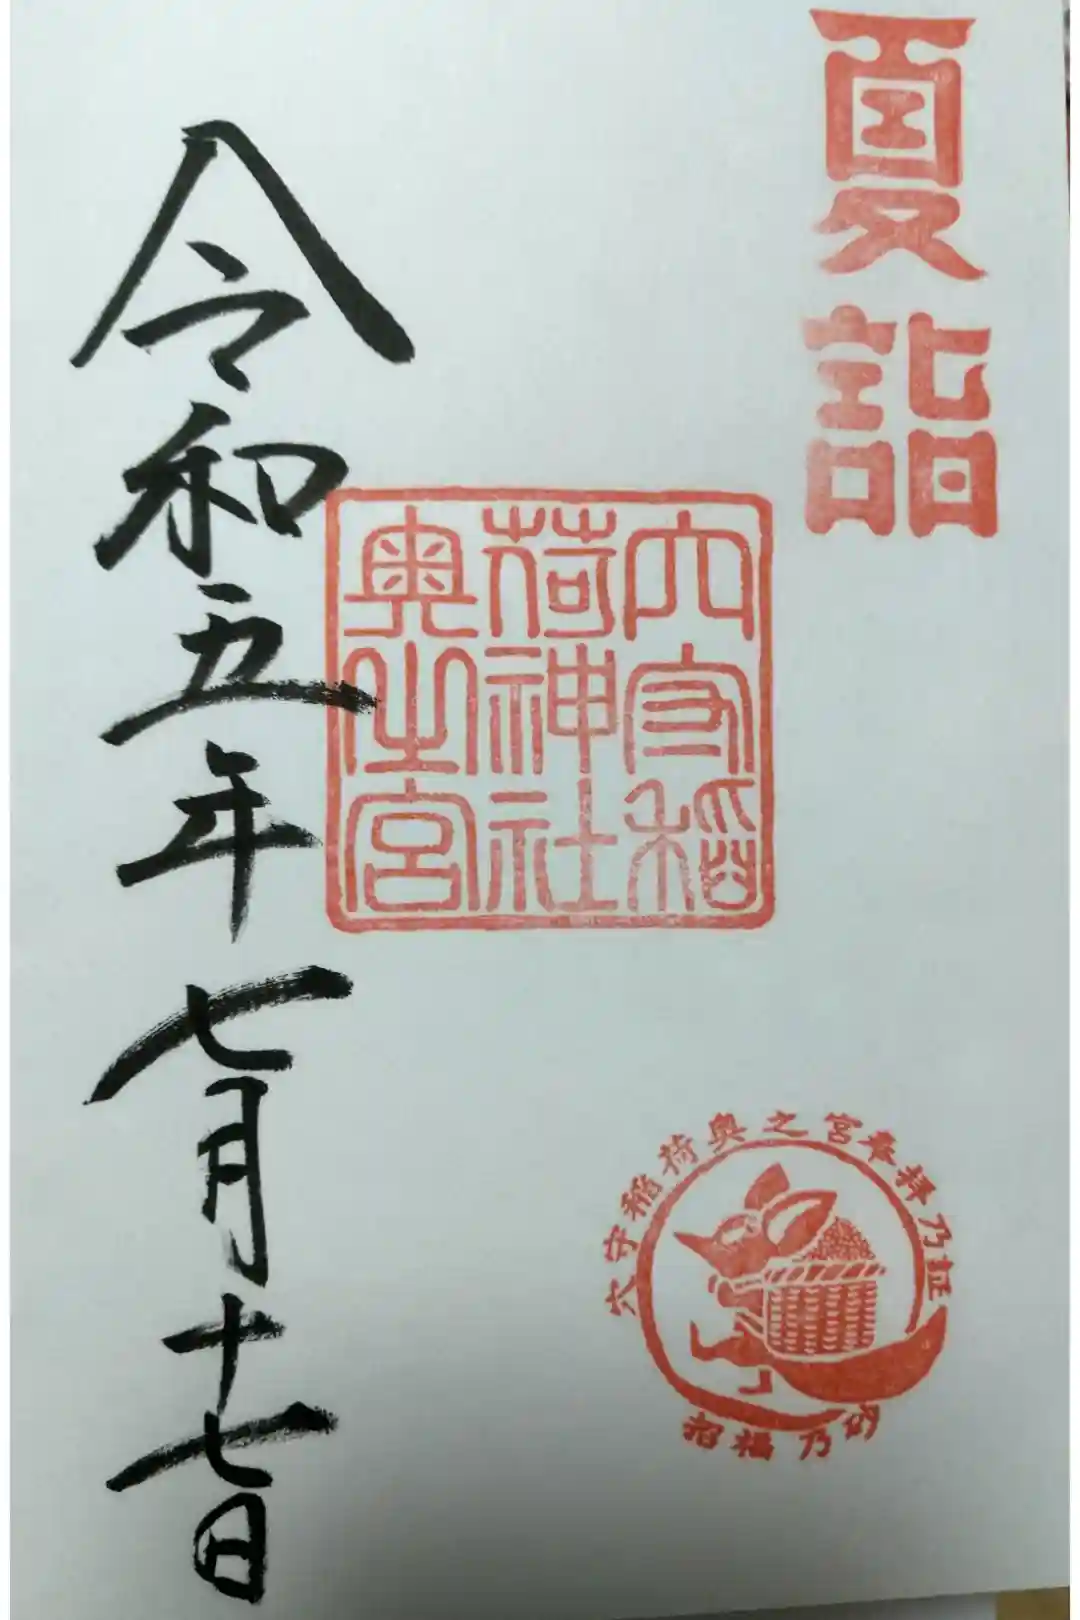 夏詣
穴守稲
荷神社
奥之宮
令和五年七月十七日
穴守稲荷奥之宮奉拝乃証
招福乃砂